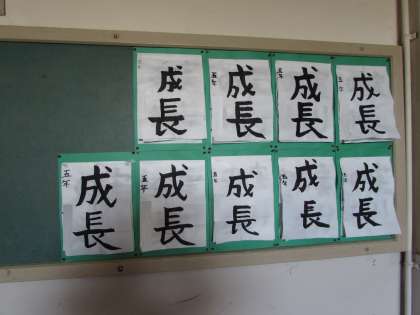 成長
五年 成長
五年 成長
五年 成長
五年 成長
五年 成長
五年 成長
五年 成長
五年 成長